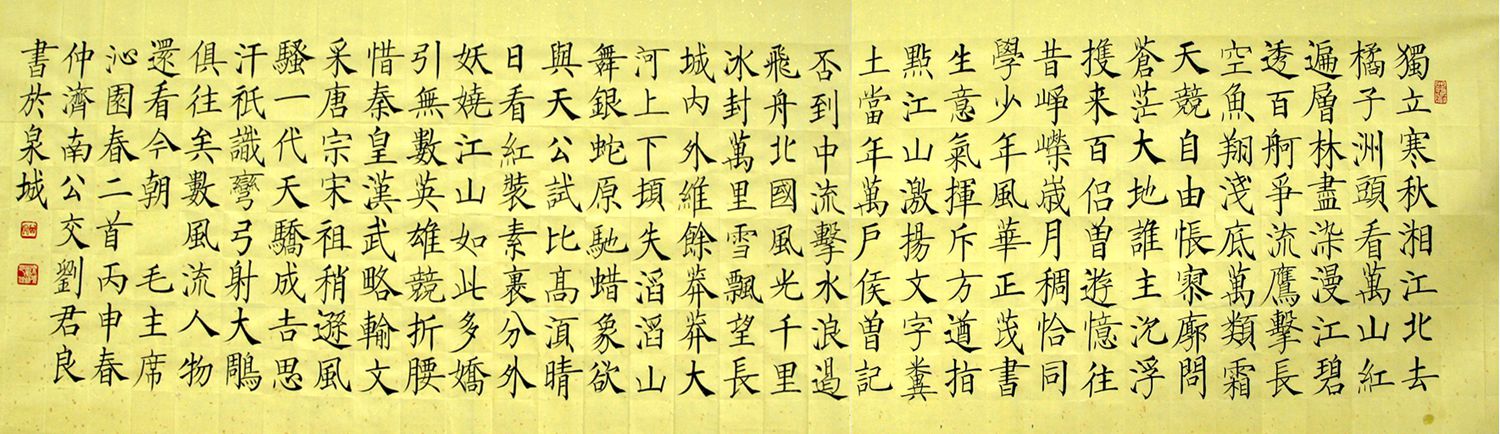 獨立寒秋湘江北去
橘子洲頭看萬山紅
遍層林盡染漫江碧
透百舸爭流鷹擊長
空魚翔淺底萬類霜
天競自由悵寥廓問
蒼茫大地誰主沉浮
携来百侶曾遊憶往
昔崢嶸崴月稠恰同
學少年風華正茂書
生意氣揮斥方遒指
點江山激揚文字糞
土當年萬戶侯曾記
否到中流擊水浪遏
飛舟北國風光千里
冰封萬里雪飄望長
城內外維餘莽莽大
河上下頓失滔滔山
舞銀蛇原馳蜡象欲
與天公試比高須晴
日看紅裝素裹分外
妖嬈江山如此多嬌
引無數英雄競折腰
惜秦皇漢武略輸文
采唐宗宋祖稍遜風
騷一代天驕成吉思
汗祇識彎弓射大鵰
俱往矣數風流人物
還看今朝 毛主席
沁園春二首丙申春
仲濟南公交劉君良
書於泉城